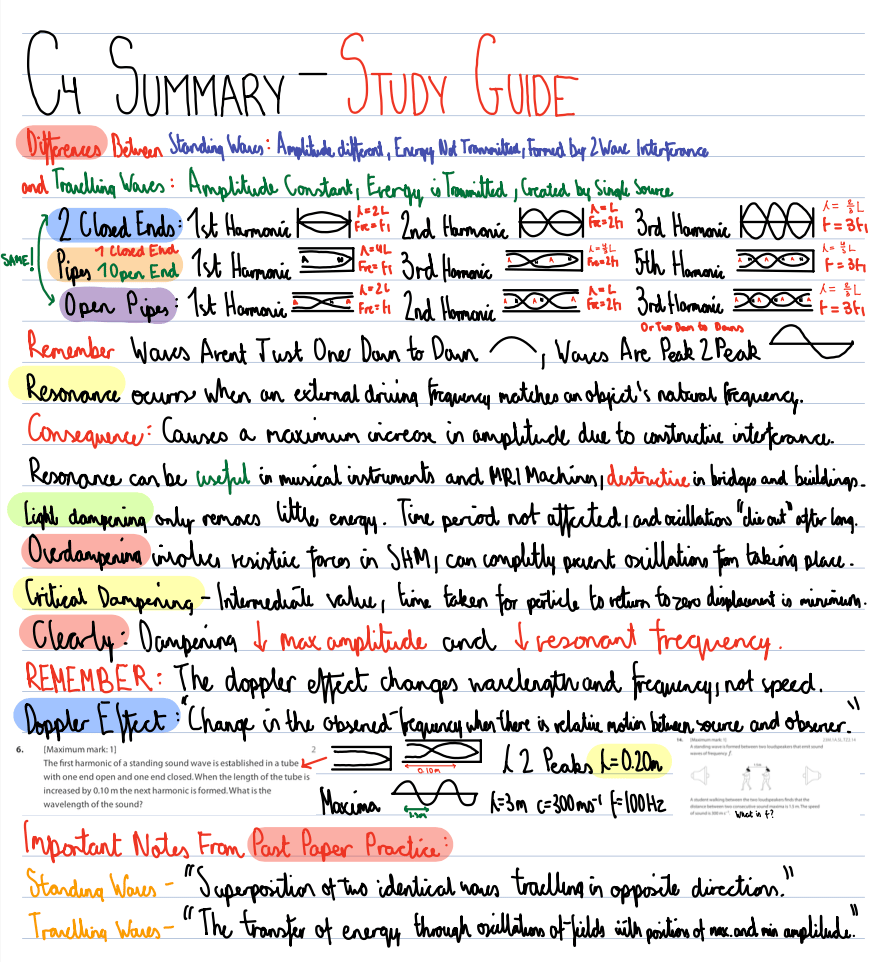 C4 SUMMARY - STUDY GUIDE
Differences Between Standing Waves: Amplitude different, Energy Not Transmitted, Formed by 2 Wave Interferance
and Travelling Waves: Amplitude Constant, Energy is Trasmitted, Created by Single Source
2 Closed Ends: 1st Harmonic λ=2L Fre=f1 2nd Harmonic λ=L Fre=2f1 3rd Harmonic λ=2/3L F=3F1
SAME! Pipes 1 Closed End 1 Open End 1st Harmonic A N λ=4L Fre=f1 3rd Harmonic λ=4/3L Fre=2f1 5th Harmonic λ=4/5L F=3F1
Open Pipes: 1st Harmonic λ=2L Fre=f1 2nd Harmonic λ=L Fre=2f1 3rd Harmonic λ=2/3L F=3F1
Or Two Down to Downs
Remember Waves Arent Just One Down to Down, Waves Are Peak 2 Peak
Resonance occurs when an external driving frequency matches an object's natural frequency.
Consequence: Causes a maximum increase in amplitude due to constructive interferance.
Resonance can be useful in musical instruments and MRI Machines, destructive in bridges and buildings.
Light dampening only removes little energy. Time period not affected, and oscillations "die out" after long.
Overdampening involves resistive forces in SHM, can completly prevent oscillations from taking place.
Critical Dampening - Intermediate value, time taken for particle to return to zero displacement is minimum.
Clearly: Dampening ↓ max amplitude and ↓ resonant frequency.
REMEMBER: The doppler effect changes wavelength and frequency, not speed.
Doppler Effect: "Change in the observed frequency when there is relative motion between source and observer."
6. [Maximum mark: 1] 2
The first harmonic of a standing sound wave is established in a tube
with one end open and one end closed. When the length of the tube is
increased by 0.10 m the next harmonic is formed. What is the
wavelength of the sound?
0.10m
λ 2 Peaks λ=0.20m
Maxima 1.5m λ=3m c=300ms⁻¹ f=100Hz
[Maximum mark: 1]
A standing wave is formed between two loudspeakers that emit sound
waves of frequency f.
A student walking between the two loudspeakers finds that the
distance between two consecutive sound maxima is 1.5 m. The speed
of sound is 300 m s⁻¹. What is f?
Important Notes From Past Paper Practice:
Standing Waves - "Superposition of two identical waves travelling in opposite directions."
Travelling Waves - "The transfer of energy through oscillations of fields with positions of max. and min amplitude."